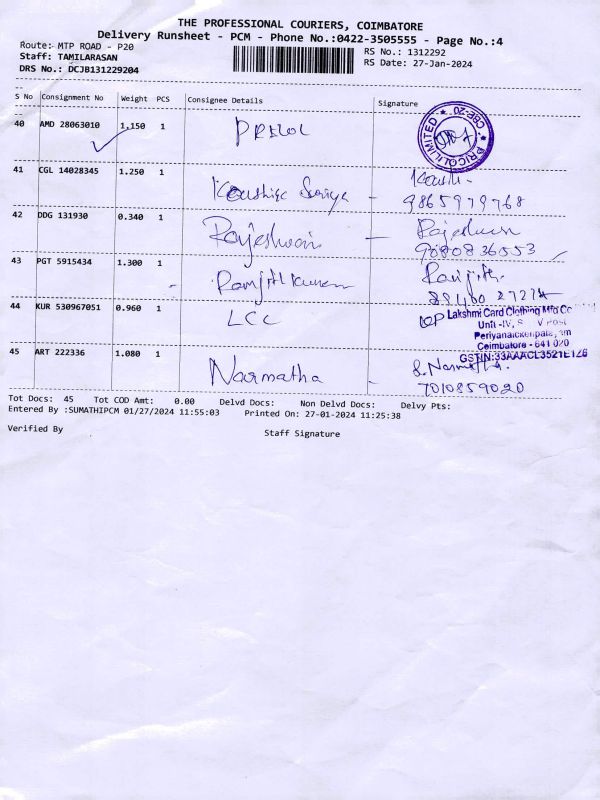 THE PROFESSIONAL COURIERS, COIMBATORE
Delivery Runsheet - PCM - Phone No.:0422-3505555 - Page No.:4
Route:- MTP ROAD - P20
RS No.: 1312292
Staff: TAMILARASAN
RS Date: 27-Jan-2024
DRS No.: DCJB131229204
S No Consignment No Weight PCS Consignee Details Signature
40 AMD 28063010 1.150 1
PRICOL LIMITED CBE-20
41 CGL 14028345 1.250 1
9865979768
42 DDG 131930 0.340 1 Rajeshwari Rajeshwari
9080836553
43 PGT 5915434 1.300 1 Ranjith Kumar Ranjith
44 KUR 530967051 0.960 1 LCC
Lakshmi Card Clothing Mfg Co
Unit -IV, S V Post
Coimbatore - 641 020
45 ART 222336 1.080 1 Narmatha
7010859020
Tot Docs: 45 Tot COD Amt: 0.00 Delvd Docs: Non Delvd Docs: Delvy Pts:
Entered By :SUMATHIPCM 01/27/2024 11:55:03 Printed On: 27-01-2024 11:25:38
Verified By Staff Signature